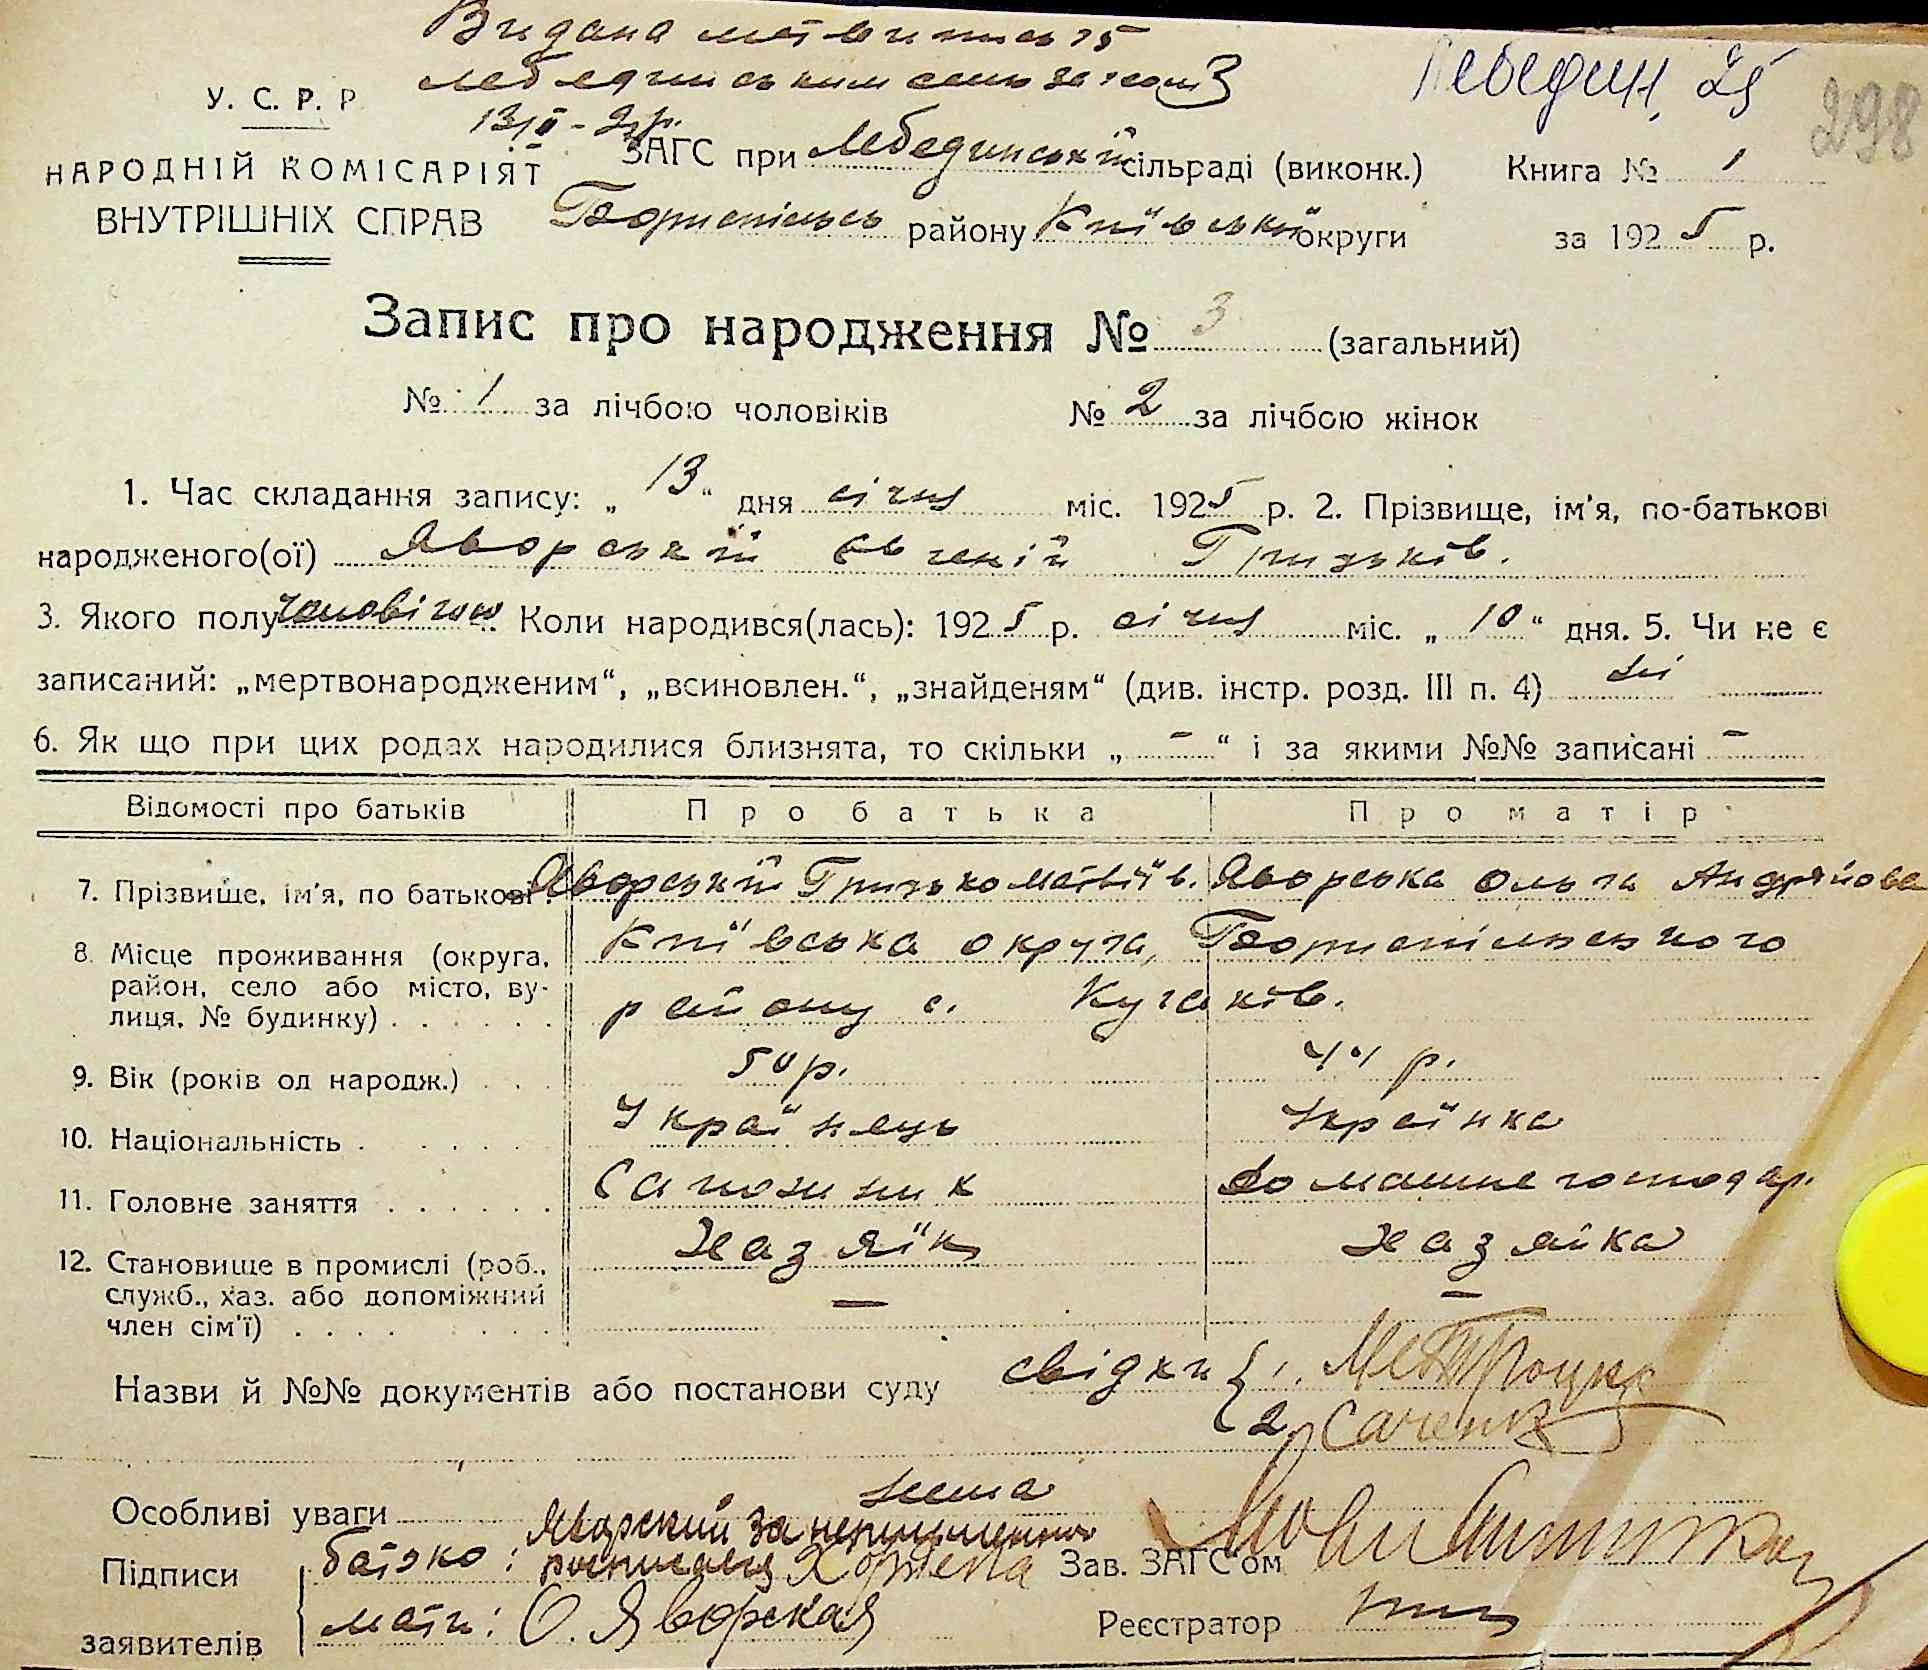 Видана метвитись 25
Лебедин, 25
298
У. С. Р. Р.
НАРОДНІЙ КОМІСАРІЯТ
ВНУТРІШНІХ СПРАВ
ЗАГС при Лебединській сільраді (виконк.) Книга № 1
Бориспільськ району Київської округи за 1925 р.
Запис про народження № 3 (загальний)
№ 1 за лічбою чоловіків № 2 за лічбою жінок
1. Час складання запису: „13“ дня січня міс. 1925 р. 2. Прізвище, ім'я, по-батькові
народженого(ої) Яворський Євгеній Грицьків.
3. Якого полу чоловічою Коли народився(лась): 1925 р. січня міс. „10“ дня. 5. Чи не є
записаний: „мертвонародженим“, „всиновлен.“, „знайденям“ (див. інстр. розд. III п. 4) ні
6. Як що при цих родах народилися близнята, то скільки „ - “ і за якими №№ записані -
Відомості про батьків Про батька Про матір
7. Прізвище, ім'я, по батькові. Яворський Грицько Матвіїв. Яворська Ольга Андрійова
8. Місце проживання (округа, Київська округа, Бориспільського
район, село або місто, ву- району с. Кучаків.
лиця, № будинку) . . . . . .
9. Вік (років од народж.) . . . 50 р. 41 р.
10. Національність . . . . . Українець Українка
11. Головне заняття . . . . . . Сапожник Домашнє господар.
12. Становище в промислі (роб., Хазяїн Хазяйка
служб., хаз. або допоміжний — —
член сім'ї) . . . .
Назви й №№ документів або постанови суду свідки { 1. Метроцка
2 Саченк
Особливі уваги нема
Підписи батько: Яворский за неписьменного
росписался
заявителів мати: О. Яворская
Зав. ЗАГС'ом
Реєстратор